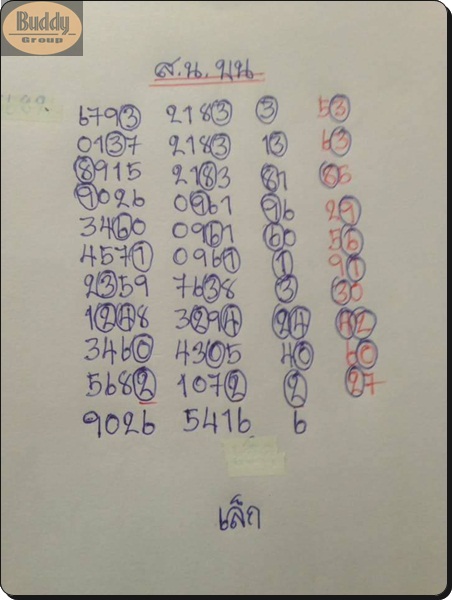 Buddy
Group
ส.น. บน
6793 2183 3 53
0137 2183 13 63
8915 2183 81 86
9026 0961 96 29
3460 0961 60 56
4571 0961 1 91
2359 7638 3 30
1248 3294 24 42
3460 4305 40 60
5682 1072 2 27
9026 5416 6
เล็ก